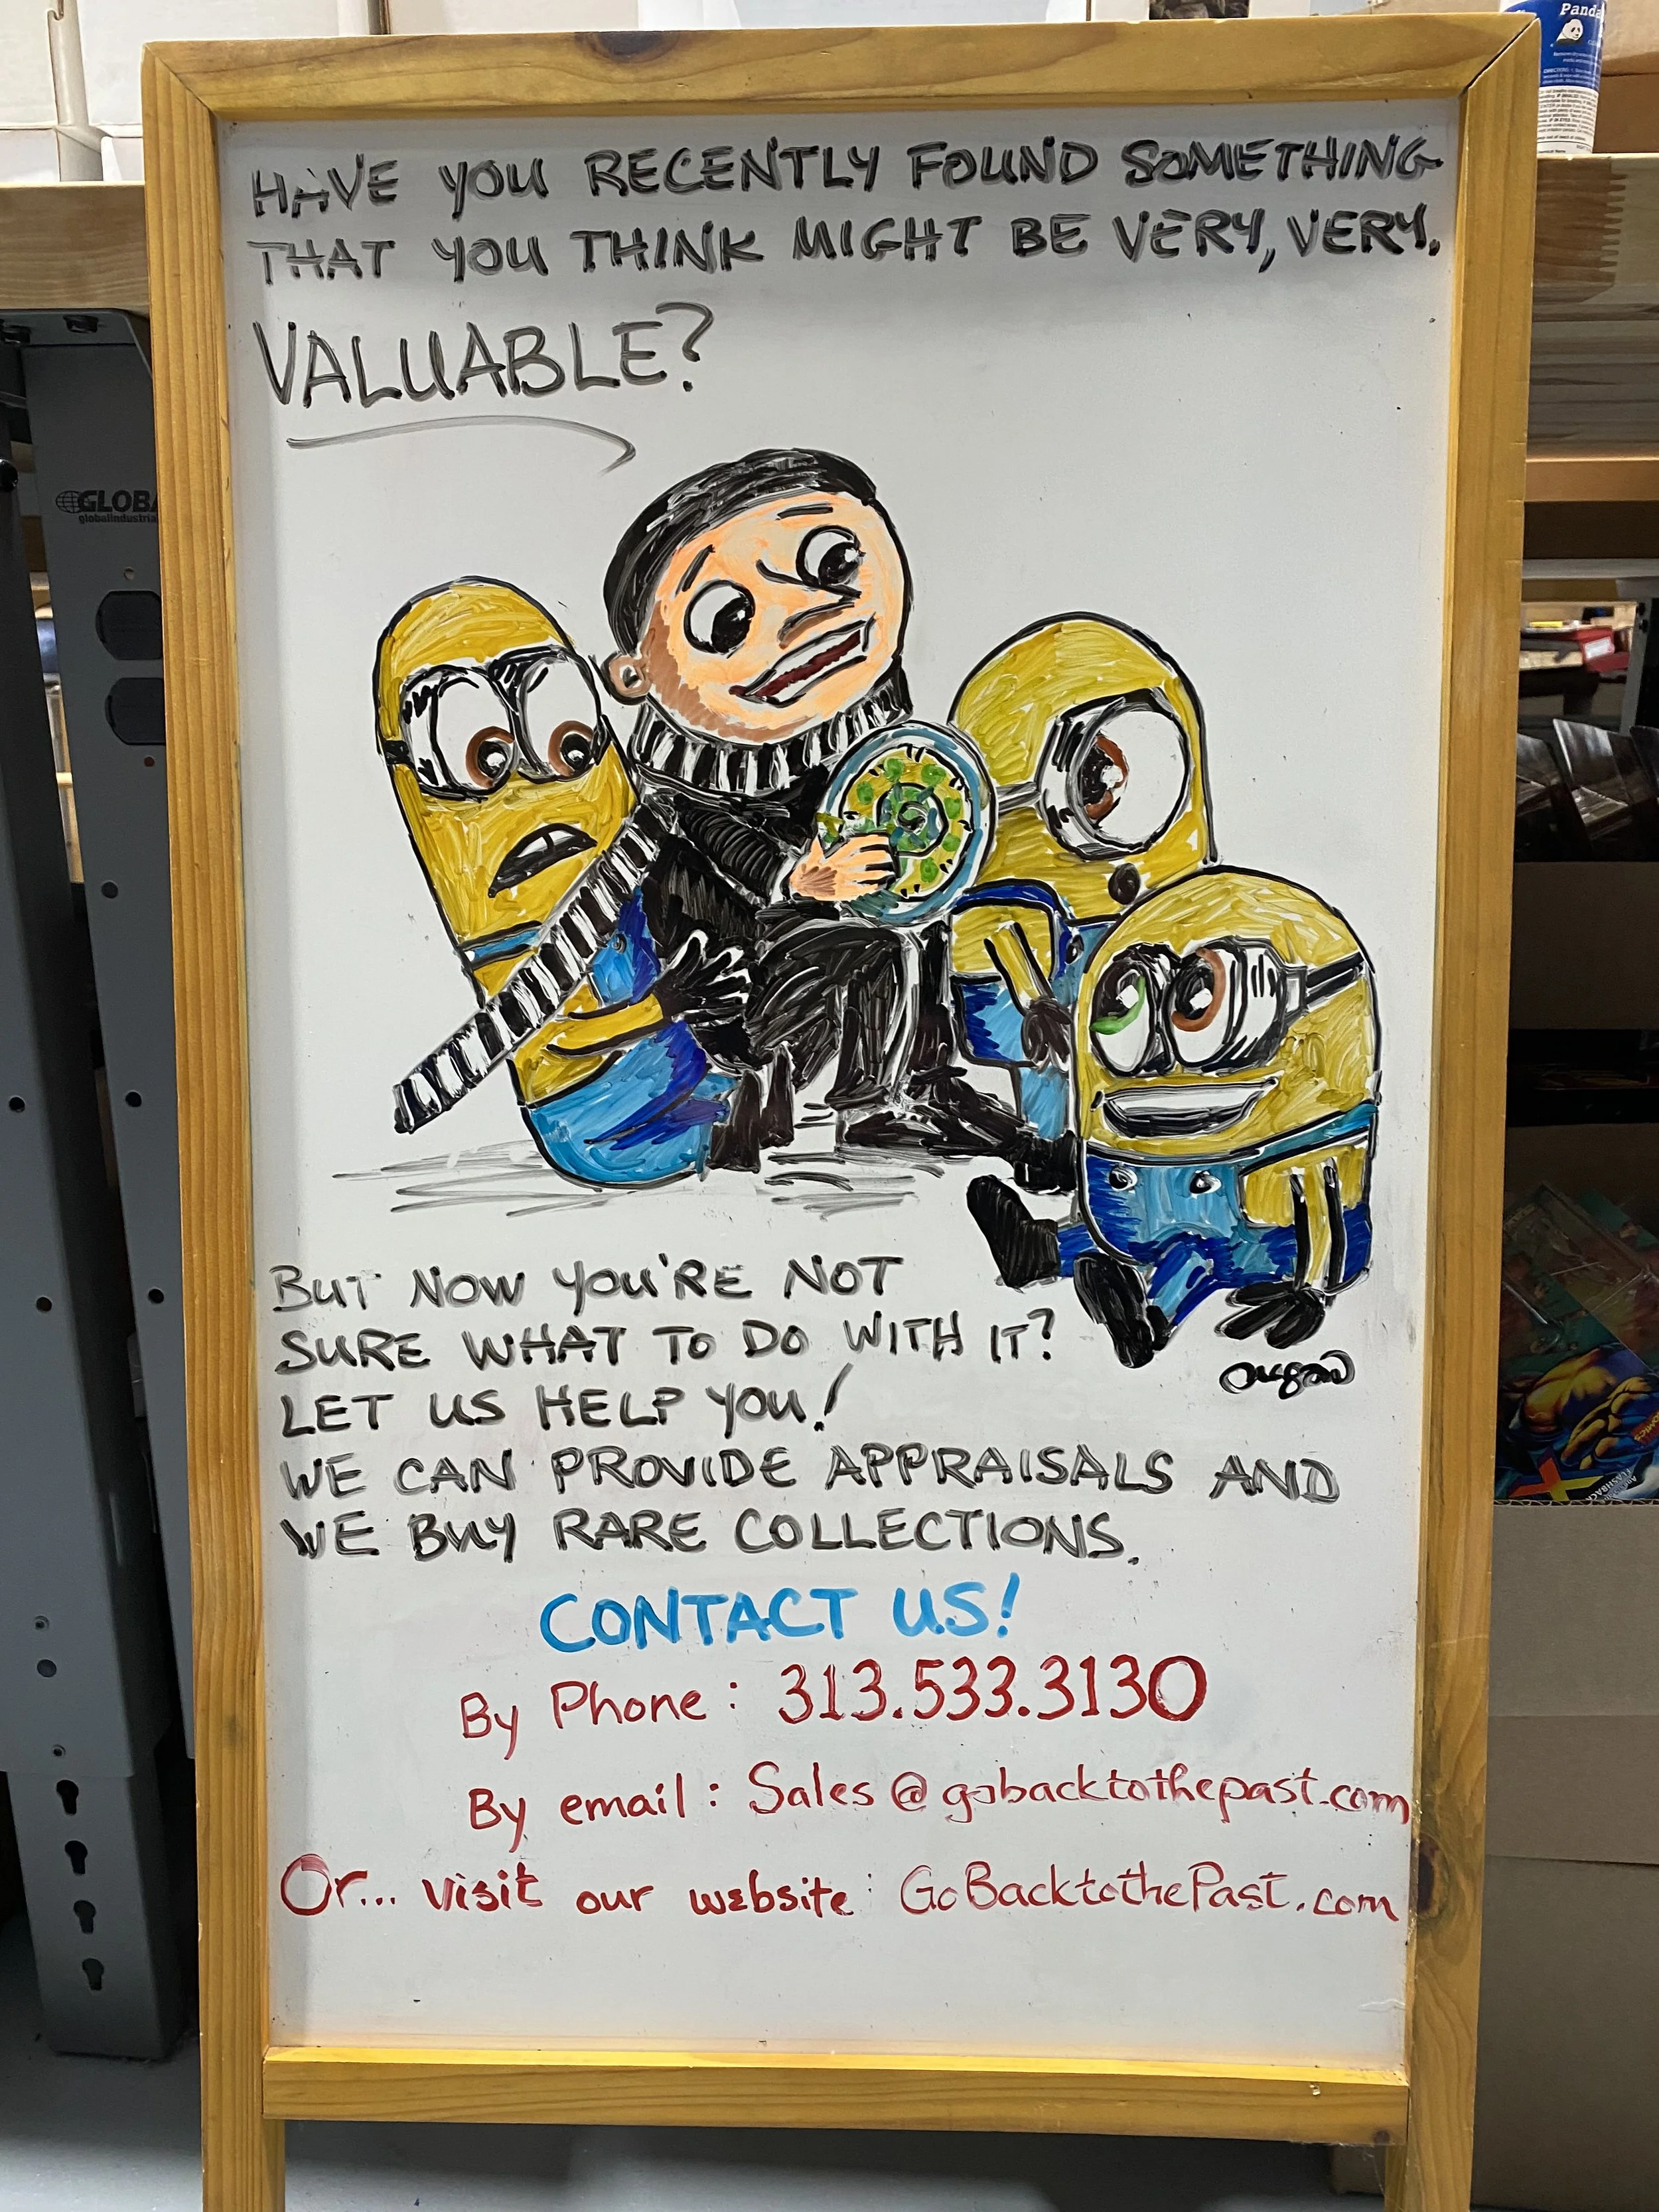 Panda
GLOBA
globalindustria
HAVE YOU RECENTLY FOUND SOMETHING
THAT YOU THINK MIGHT BE VERY, VERY.
VALUABLE?
BUT NOW YOU'RE NOT
SURE WHAT TO DO WITH IT?
LET US HELP YOU!
WE CAN PROVIDE APPRAISALS AND
WE BUY RARE COLLECTIONS.
CONTACT US!
By Phone: 313.533.3130
By email: Sales@gobacktothepast.com
Or... visit our website: GoBacktothePast.com